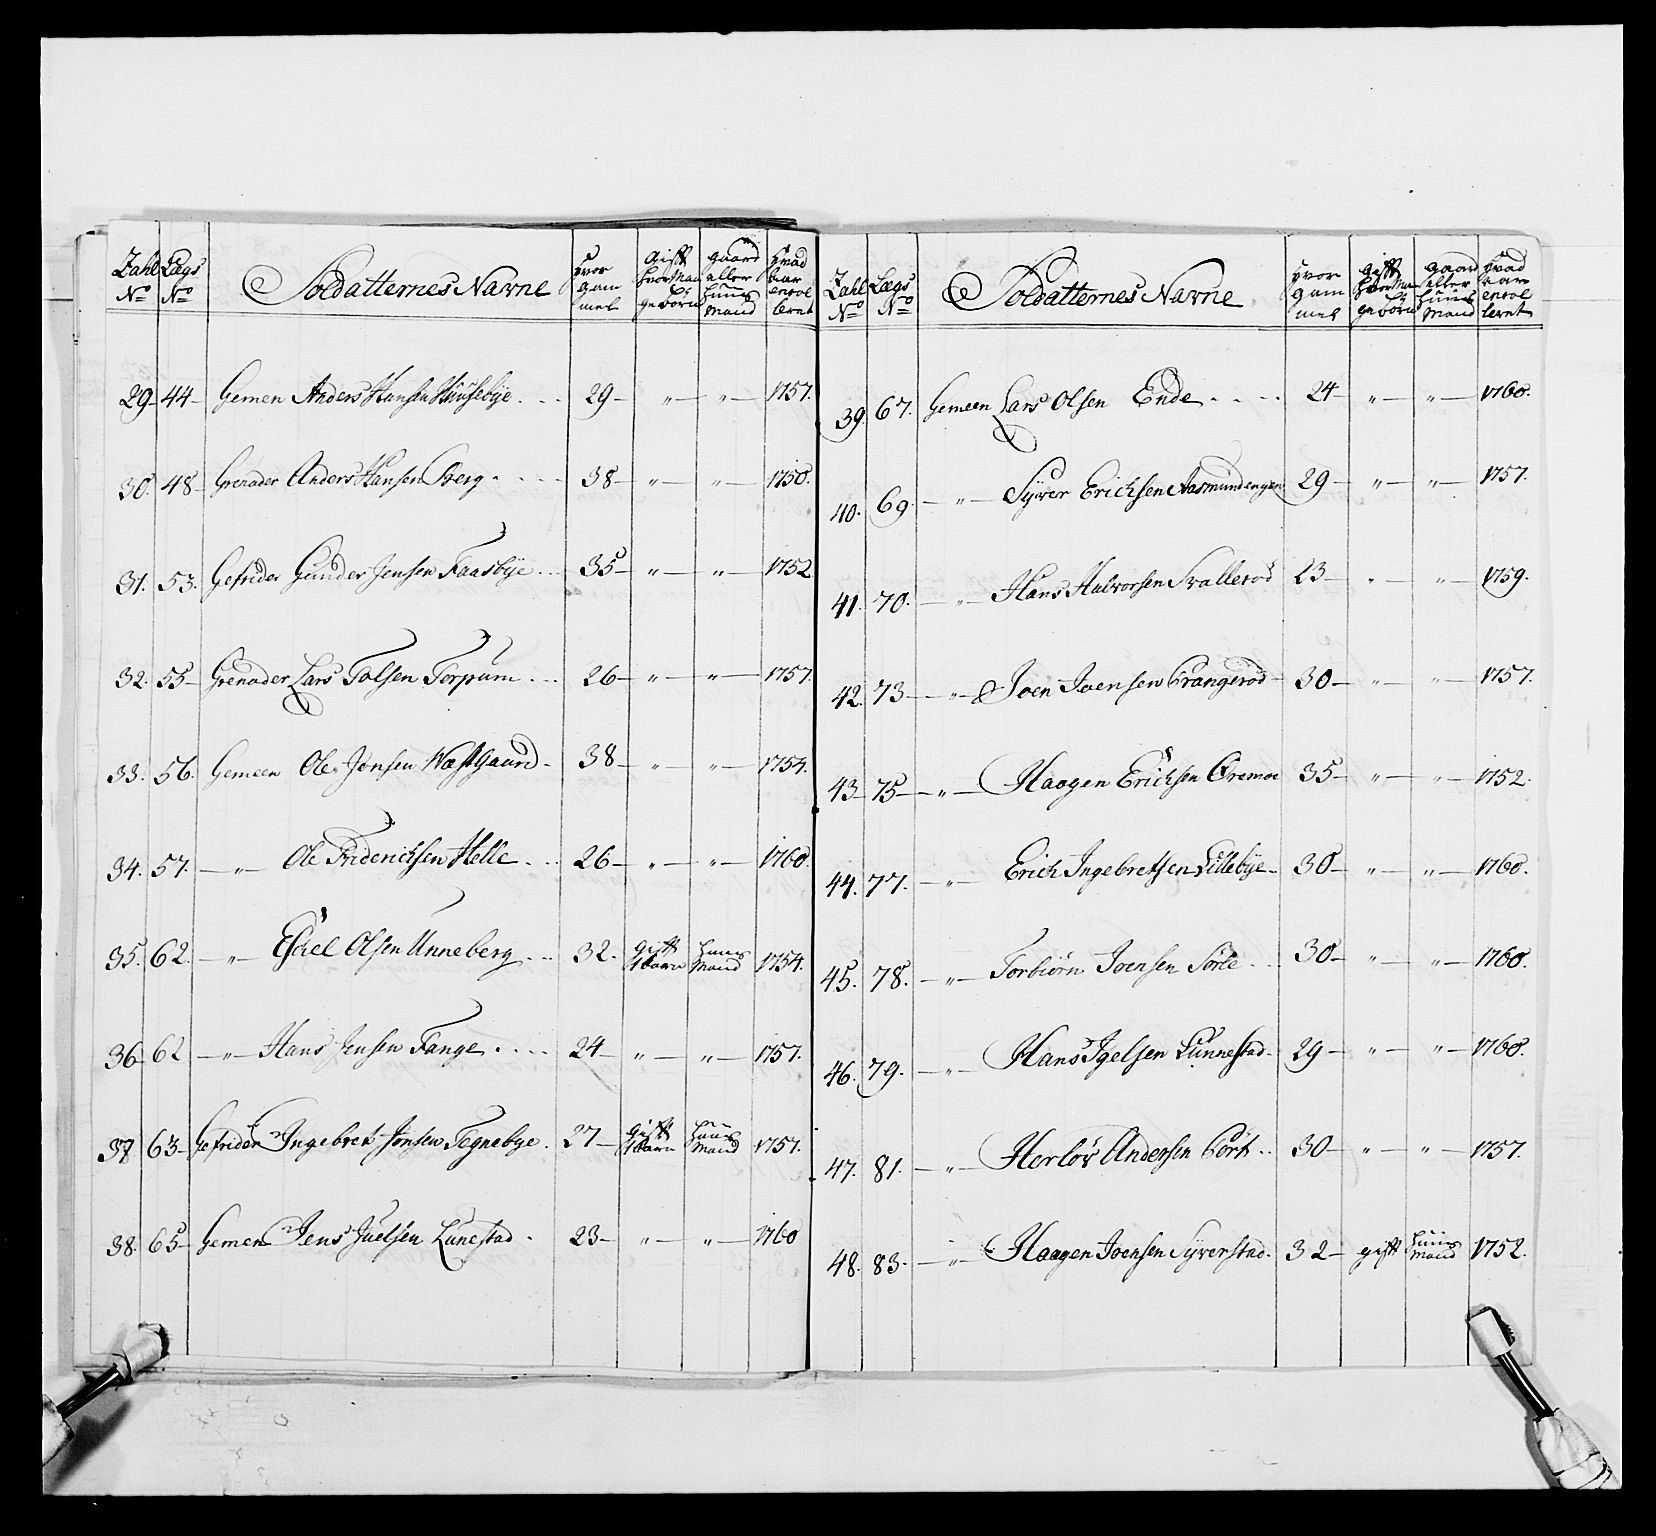 Zahl N° | Lægs N° | Soldatternes Navne | Hvor gammel | Gift hvor Mange børn | Gaard eller Huus Mand | Hvad Aar enrolleret
29 | 44 | Gemen Anders Hansen Huusebÿe | 29 | " | " | 1757.
30. | 48 | Grenader Anders Hansen Berg | 38 | " | " | 1750.
31. | 53. | Gefrider Gunder Jensen Faasbÿe | 35 | " | " | 1752
32. | 55 | Grenader Lars Tolsen Torpum | 26 | " | " | 1757.
33. | 56. | Gemeen Ole Jonsen Wæstgaard | 38 | " | " | 1754.
34. | 57. | " Ole Friderichsen Helle | 26 | " | " | 1760.
35. | 62. | " Eschel Olsen Unneberg | 32. | gift 1 barn | Huus Mand | 1754.
36 | 62 | " Hans Jensen Tange | 24 | " | " | 1757.
37 | 63 | Gefrider Ingebret Jonsen Tegnebye | 27 | gift 1 barn | Huus Mand | 1757.
38. | 65 | Gemen Jens Juelsen Lunestad | 23 | " | " | 1760
Zahl N° | Lægs N° | Soldatternes Navne | Hvor gammel | Gift hvor Mange børn | Gaard eller Huus Mand | Hvad Aar enrolleret
39. | 67. | Gemeen Lars Olsen Ende | 24 | " | " | 1760.
40. | 69. | " Sÿver Erichsen Aasmundengen | 29 | " | " | 1757.
41. | 70. | " Hans Halvorsen Svallerød | 23 | " | " | 1759.
42. | 73 | " Joen Joensen Prangerød | 30 | " | " | 1757.
43 | 75 | " Haagen Erichsen Øremoe | 35 | " | " | 1752.
44. | 77. | " Erich Ingebretsen Lillebÿe | 30 | " | " | 1760.
45. | 78. | " Torbiørn Joensen Sørle | 30 | " | " | 1760.
46. | 79. | " Hans Igelsen Lunnestad | 29 | " | " | 1760.
47. | 81. | " Herlöv Andersen Pört | 30 | " | " | 1757.
48. | 83. | " Haagen Joensen Sÿverstad | 32 | gift | Huus Mand | 1752.